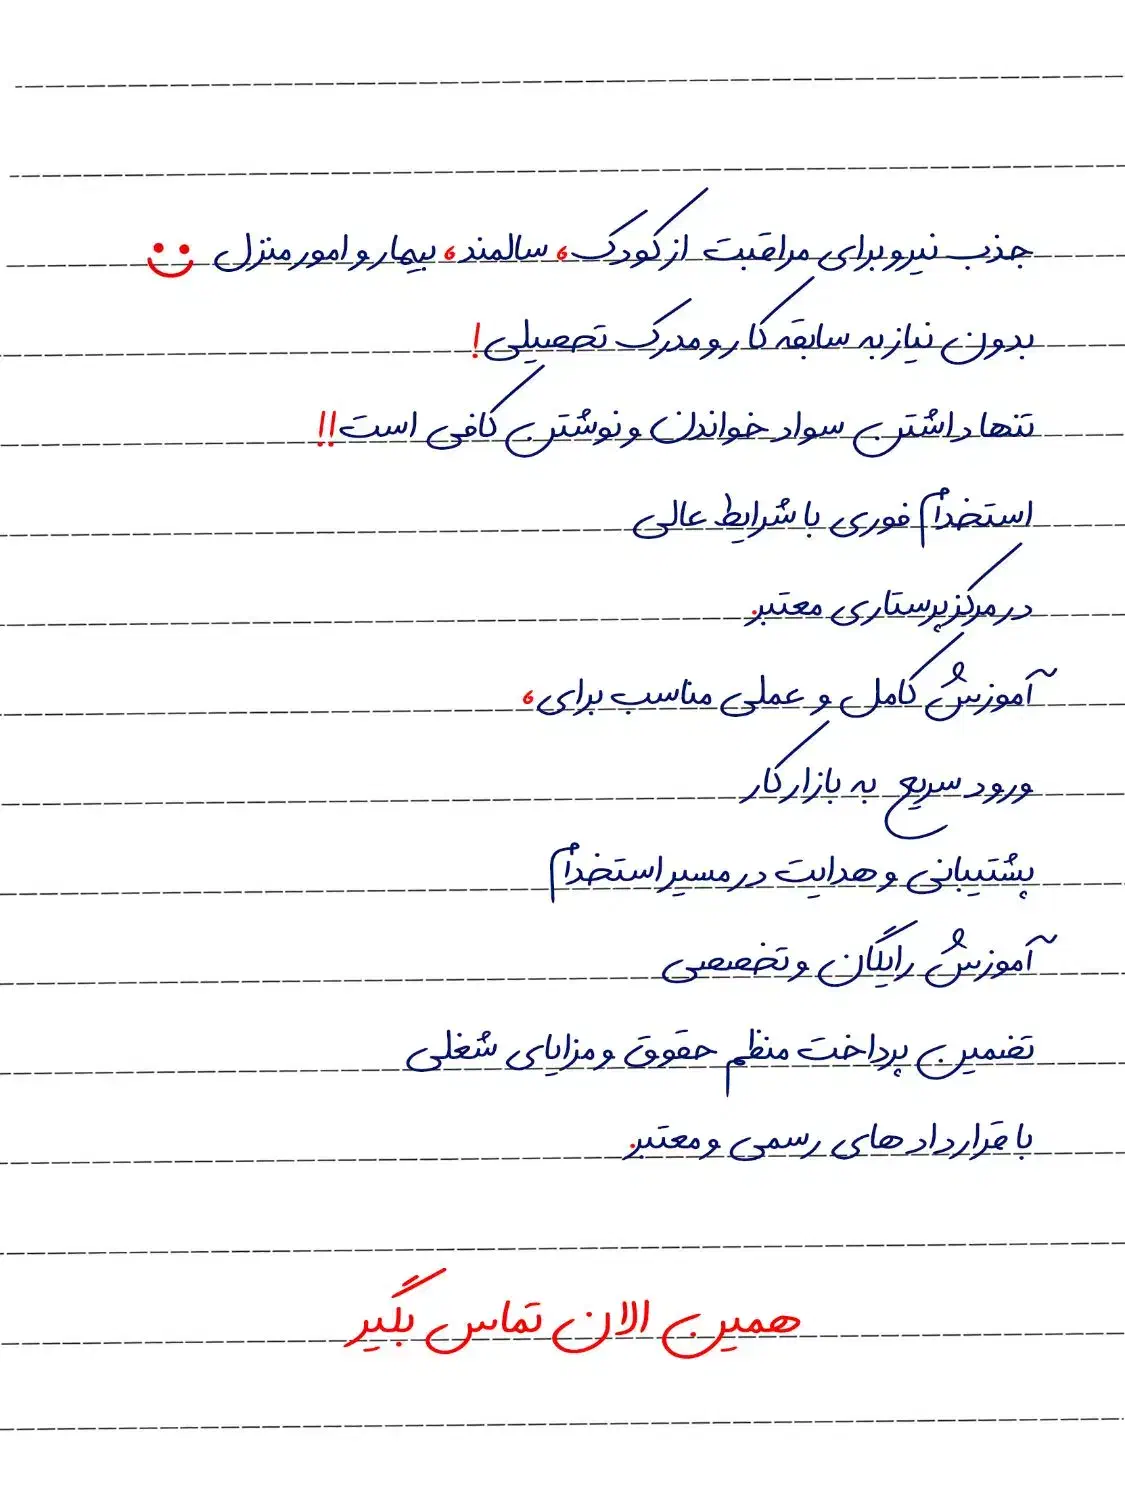 جذب نیرو برای مراقبت از کودک، سالمند، بیمار و امور منزل
بدون نیاز به سابقه کار و مدرک تحصیلی!
تنها داشتن سواد خواندن و نوشتن کافی است!!
استخدام فوری با شرایط عالی
در مرکز پرستاری معتبر.
آموزش کامل و عملی مناسب برای،
ورود سریع به بازار کار
پشتیبانی و هدایت در مسیر استخدام
آموزش رایگان و تخصصی
تضمین پرداخت منظم حقوق و مزایای شغلی
با قرارداد های رسمی و معتبر.
همین الان تماس بگیر